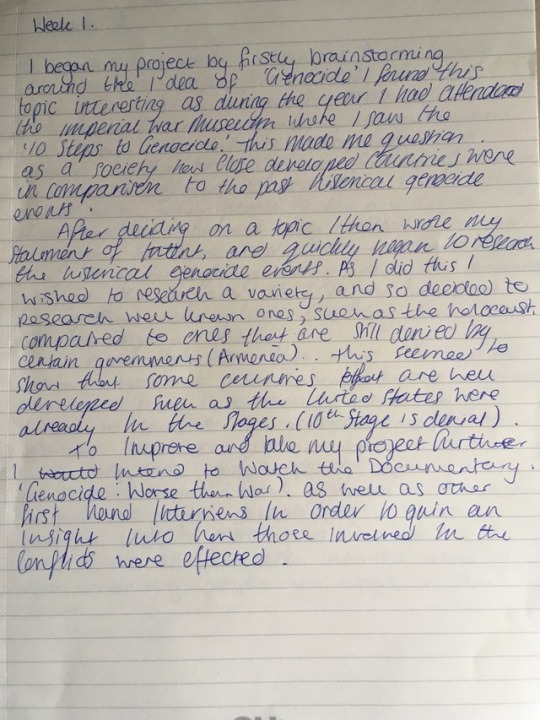 Week 1.
I began my project by firstly brainstorming
around the idea of 'Genocide' I found this
topic interesting as during the year I had attended
the Imperial War Museum where I saw the
'10 Steps to Genocide.' This made me question
as a society how close developed countries were
in comparison to the past historical genocide
events.
After deciding on a topic I then wrote my
Statment of Intent, and quickly began to research
the historical genocide events. As I did this I
wished to research a variety, and so decided to
research well known ones, such as the holocaust
compared to ones that are still denied by
certain governments (Armenea). This seemed to
show that some countries that are well
developed such as the United States were
already in the stages. (10th Stage is denial).
To Improve and take my project further
I would intend to watch the Documentary.
'Genocide: Worse than War). as well as other
first hand Interviews In order to gain an
insight into how those involved in the
conflicts were effected.